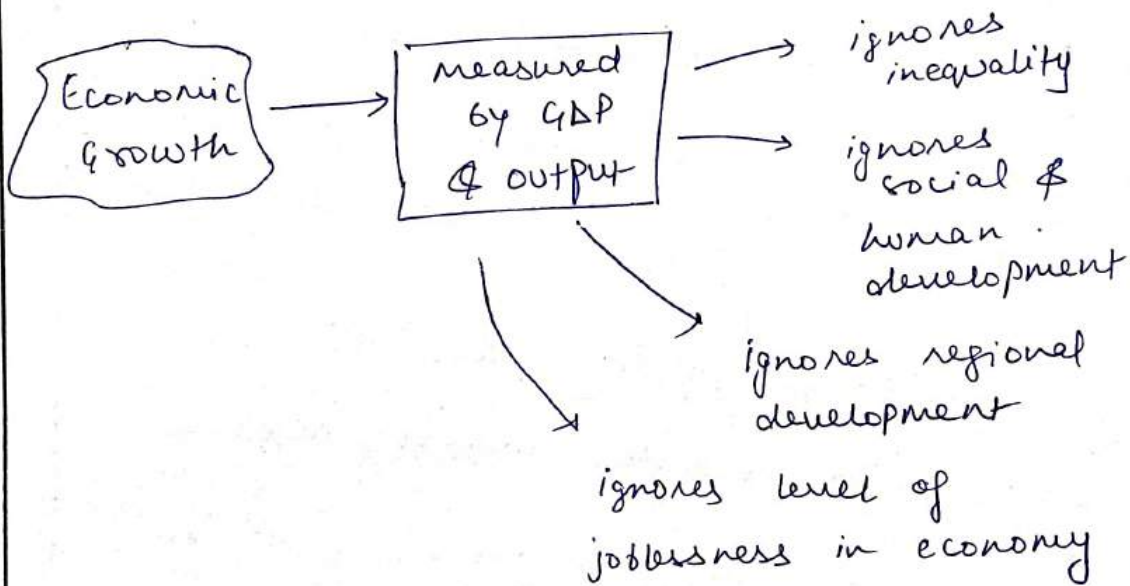 Economic
Growth
measured
by GDP
& output
ignores
inequality
ignores
social &
human
development
ignores regional
development
ignores level of
joblessness in economy